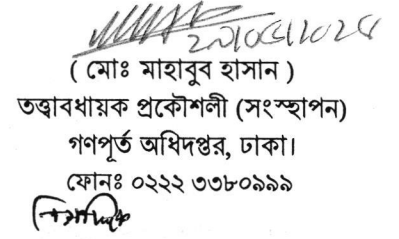 ( মোঃ মাহাবুব হাসান )
তত্ত্বাবধায়ক প্রকৌশলী (সংস্হাপন)
গণপূর্ত অধিদপ্তর, ঢাকা।
ফোনঃ ০২২২ ৩৩৮০৯৯৯